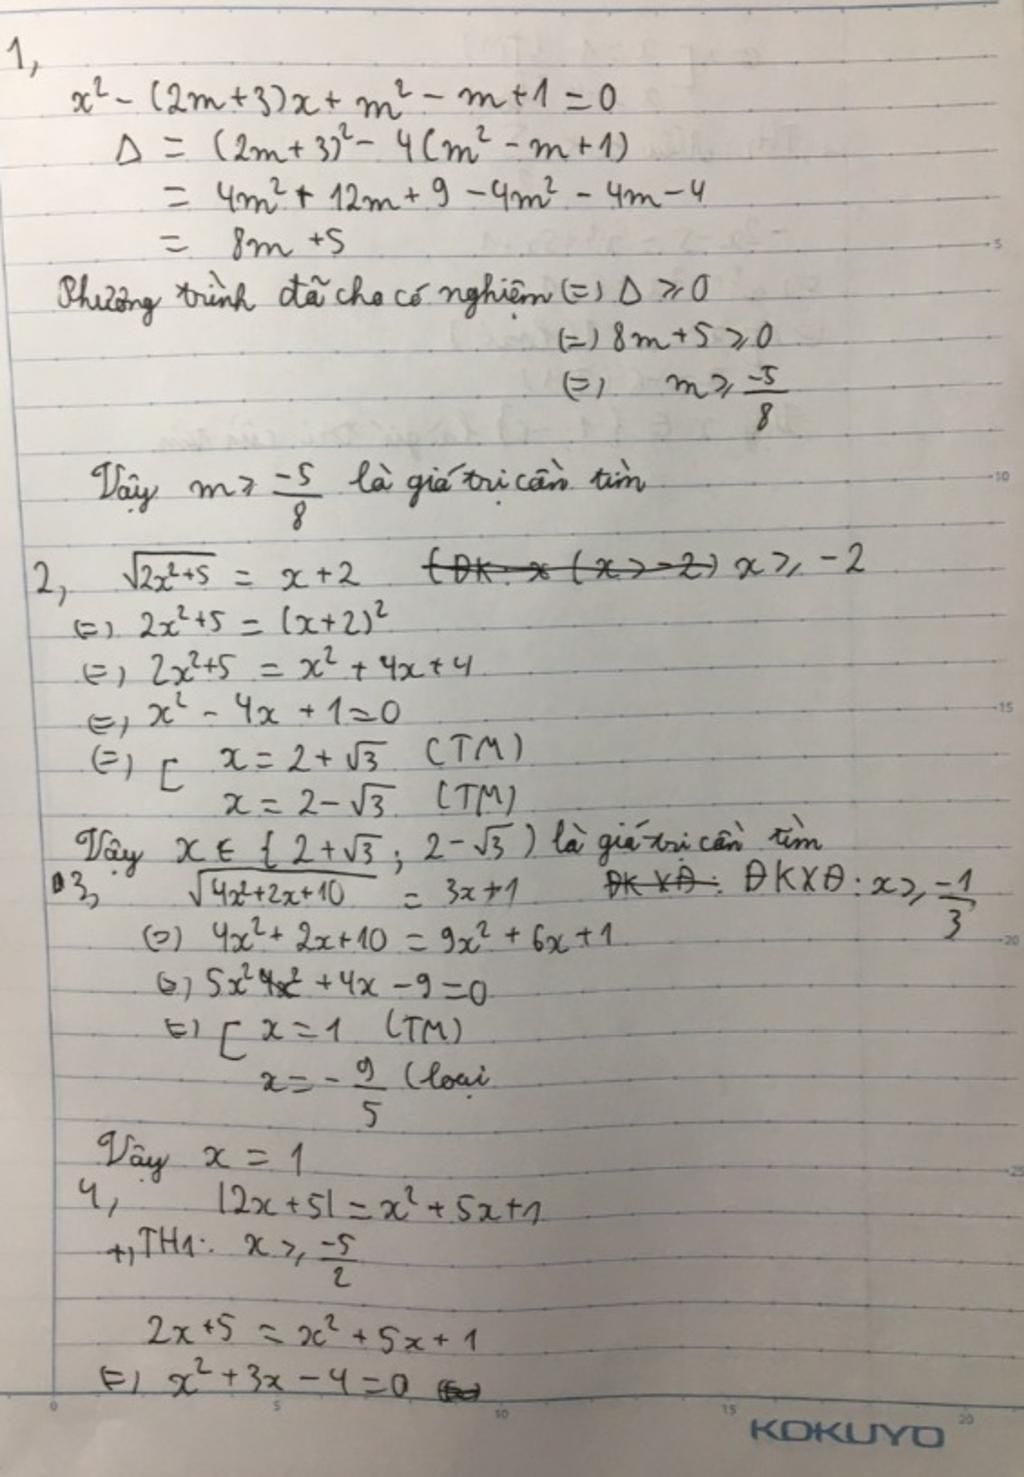 1,
x² - (2m+3)x + m² - m + 1 = 0
Δ = (2m+3)² - 4(m² - m + 1)
= 4m² + 12m + 9 - 4m² - 4m - 4
= 8m + 5
Phương trình đã cho có nghiệm (=) Δ ⩾ 0
(=) 8m + 5 ⩾ 0
(=) m ⩾ -5/8
Vậy m ⩾ -5/8 là giá trị cần tìm
2, √(2x²+5) = x + 2 (ĐK: x (x ⩾ -2) x ⩾ -2
(=) 2x²+5 = (x+2)²
(=) 2x²+5 = x² + 4x + 4
(=) x² - 4x + 1 = 0
(=) [ x = 2 + √3 (TM)
x = 2 - √3 (TM)
Vậy x ∈ { 2 + √3 ; 2 - √3 ) là giá trị cần tìm
3, √(4x²+2x+10) = 3x + 1 ĐKXĐ: ĐKXĐ: x ⩾ -1/3
(=) 4x² + 2x + 10 = 9x² + 6x + 1
(=) 5x² 4x² + 4x - 9 = 0
(=) [ x = 1 (TM)
x = - 9/5 (loại
Vậy x = 1
4, |2x + 5| = x² + 5x + 1
+, TH1: x ⩾ -5/2
2x + 5 = x² + 5x + 1
(=) x² + 3x - 4 = 0
5
10
15
20
25
0 5 10 15 20
KOKUYO